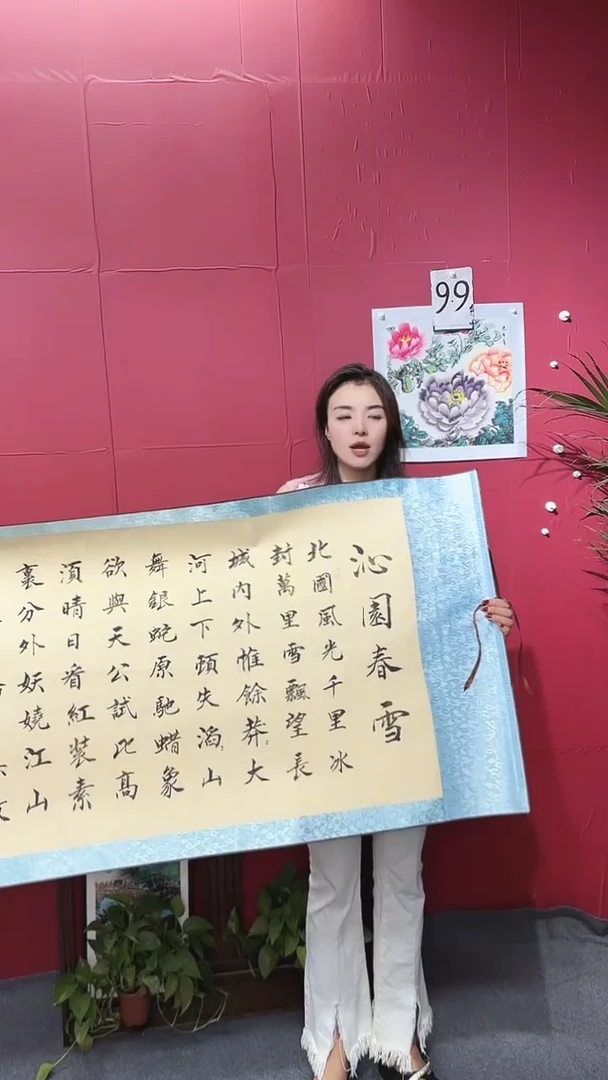 99
沁園春雪
北國風光千里冰
封萬里雪飄望長
城內外惟餘莽大
河上下頓失滔山
舞銀蛇原馳蜡象
欲與天公試比高
須晴日看紅裝素
裹分外妖嬈江山